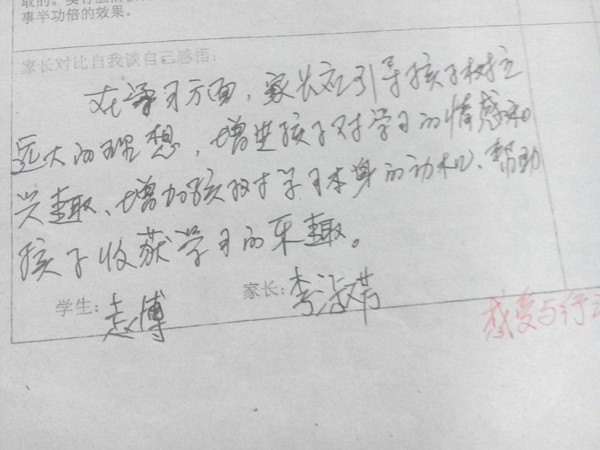 取的。
事半功倍的效果。
家长对比自我谈自己感悟:
在学习方面，家长应引导孩子树立
远大的理想，增进孩子对学习的情感和
兴趣、增加孩子对学习本身的动机、帮助
孩子收获学习的乐趣。
学生:志博 家长:李淑芳
感受与行